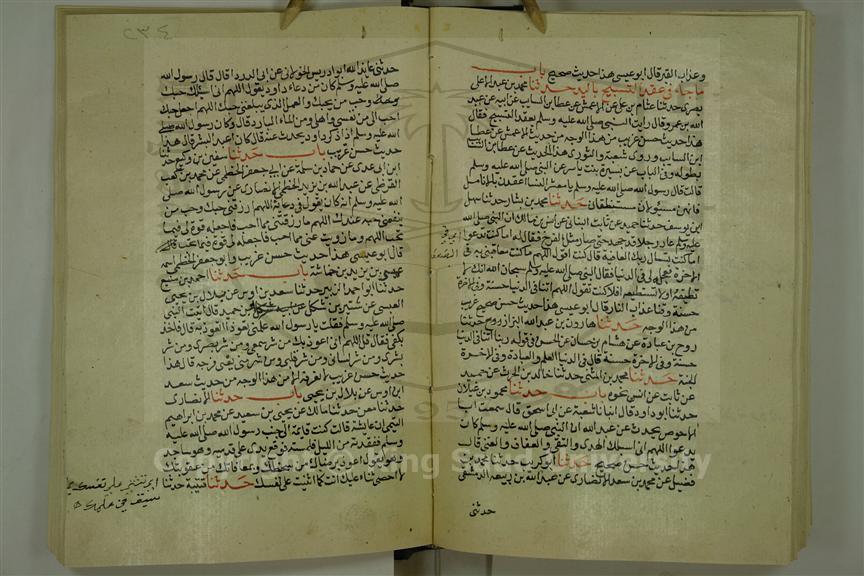 وعذاب القبر قال ابو عيسى هذا حديث صحيح باب
ما جاء فى عقد التسبيح باليد حدثنا محمد بن عبد الاعلى
بصرى حدثنا عثام بن على عن الاعمش عن عطا بن السائب عن ابيه عن عبد
الله بن عمرو قال رايت النبى صلى الله عليه وسلم يعقد التسبيح قال
هذا حديث حسن غريب من هذا الوجه من حديث الاعمش عن عطا
ابن السايب وروى شعبة والثورى هذا الحديث عن عطا بن السائب
بطوله وفى الباب عن يسيرة بنت ياسر عن النبى صلى الله عليه وسلم
قالت قال رسول الله صلى الله عليه وسلم يا معشر النسا اعقدن بالانامل
فانهن مسئولات مستنطقات حدثنا محمد بن بشار حدثنا سهل
ابن يوسف حدثنا حميد عن ثابت البنانى عن انس بن مالك ان النبى صلى الله
عليه وسلم عاد رجلا قد جهد حتى صار مثل الفرخ فقال له اما كنت تدعوا
اما كنت تسال ربك العافية قال كنت اقول اللهم ما كنت معاقبنى به فى
الاخرة فعجله لى فى الدنيا فقال النبى صلى الله عليه وسلم سبحان الله انك لا
تطيقه او لا تستطيعه افلا كنت تقول اللهم اتنا فى الدنيا حسنة وفى الاخرة
حسنة وقنا عذاب النار قال ابو عيسى هذا حديث حسن صحيح غريب
من هذا الوجه حدثنا هارون بن عبد الله البزاز روح حدثنا
روح بن عبادة عن هشام بن حسان عن الحسن فى قوله ربنا اتنا فى الدنيا
حسنة وفى الاخرة حسنة قال فى الدنيا العلم والعبادة وفى الاخرة
الجنة حدثنا محمد بن المثنى حدثنا خالد بن الحرث عن حميد
عن ثابت عن انس نحوه باب حدثنا محمود بن غيلان
حدثنا ابو داود قال انبانا شعبة عن ابى اسحق قال سمعت ابا
الاحوص يحدث عن عبد الله ان النبى صلى الله عليه وسلم كان
يدعو اللهم انى اسئلك الهدى والتقى والعفاف والغنى قال
هذا حديث حسن صحيح حدثنا ابو كريب حدثنا محمد بن
فضيل عن محمد بن سعد الانصارى عن عبد الله بن ربيعة الدمشقى
حدثنى
٢٣٤
حدثنى عايذ الله ابو ادريس الخولانى عن ابى الدرداء قال قال رسول الله
صلى الله عليه وسلم كان من دعاء داود يقول اللهم انى اسئلك حبك
وحب من يحبك والعمل الذى يبلغنى حبك اللهم اجعل حبك
احب الى من نفسى واهلى ومن الماء البارد قال وكان رسول الله صلى
الله عليه وسلم اذا ذكر داود يحدث عنه قال كان اعبد البشر قال هذا
حديث حسن غريب باب حدثنا سفين بن وكيع حدثنا
ابن ابى عدى عن حماد بن سلمة عن ابى جعفر الخطمى عن محمد بن كعب
القرظى عن عبد الله بن يزيد الخطمى الانصارى عن رسول الله صلى
الله عليه وسلم انه كان يقول فى دعائه اللهم ارزقنى حبك وحب من
ينفعنى حبه عندك اللهم ما رزقتنى مما احب فاجعله قوة لى فيما
تحب اللهم وما زويت عنى مما احب فاجعله لى فيما تحب
قال ابو عيسى هذا حديث حسن غريب وابو جعفر الخطمى اسمه
عمير بن يزيد بن خماشة باب حدثنا احمد بن منيع
حدثنا ابو احمد الزبيرى حدثنا سعد بن اوس عن بلال بن يحيى
العبسى عن شتير بن شكل عن ابيه شكل بن حميد قال اتيت النبى
صلى الله عليه وسلم فقلت يا رسول الله علمنى تعوذا اتعوذ به قال فاخذ
بكفى فقال قل اللهم انى اعوذ بك من شر سمعى ومن شر بصرى ومن شر
لسانى ومن شر قلبى ومن شر منيى يعنى فرجه قال هذا
حديث حسن غريب لا نعرفه الا من هذا الوجه من حديث سعد
ابن اوس عن بلال بن يحيى باب حدثنا الانصارى
حدثنا معن حدثنا مالك عن يحيى بن سعيد عن محمد بن ابراهيم
التيمى ان عائشة قالت كنت نائمة الى جنب رسول الله صلى الله عليه
وسلم ففقدته من الليل فلمسته فوقع يدى على قدميه وهو ساجد
وهو يقول اعوذ برضاك من سخطك وبمعافاتك من عقوبتك
لا احصى ثناء عليك انت كما اثنيت على نفسك حدثنا قتيبة حدثنا
Copyright © King Saud University